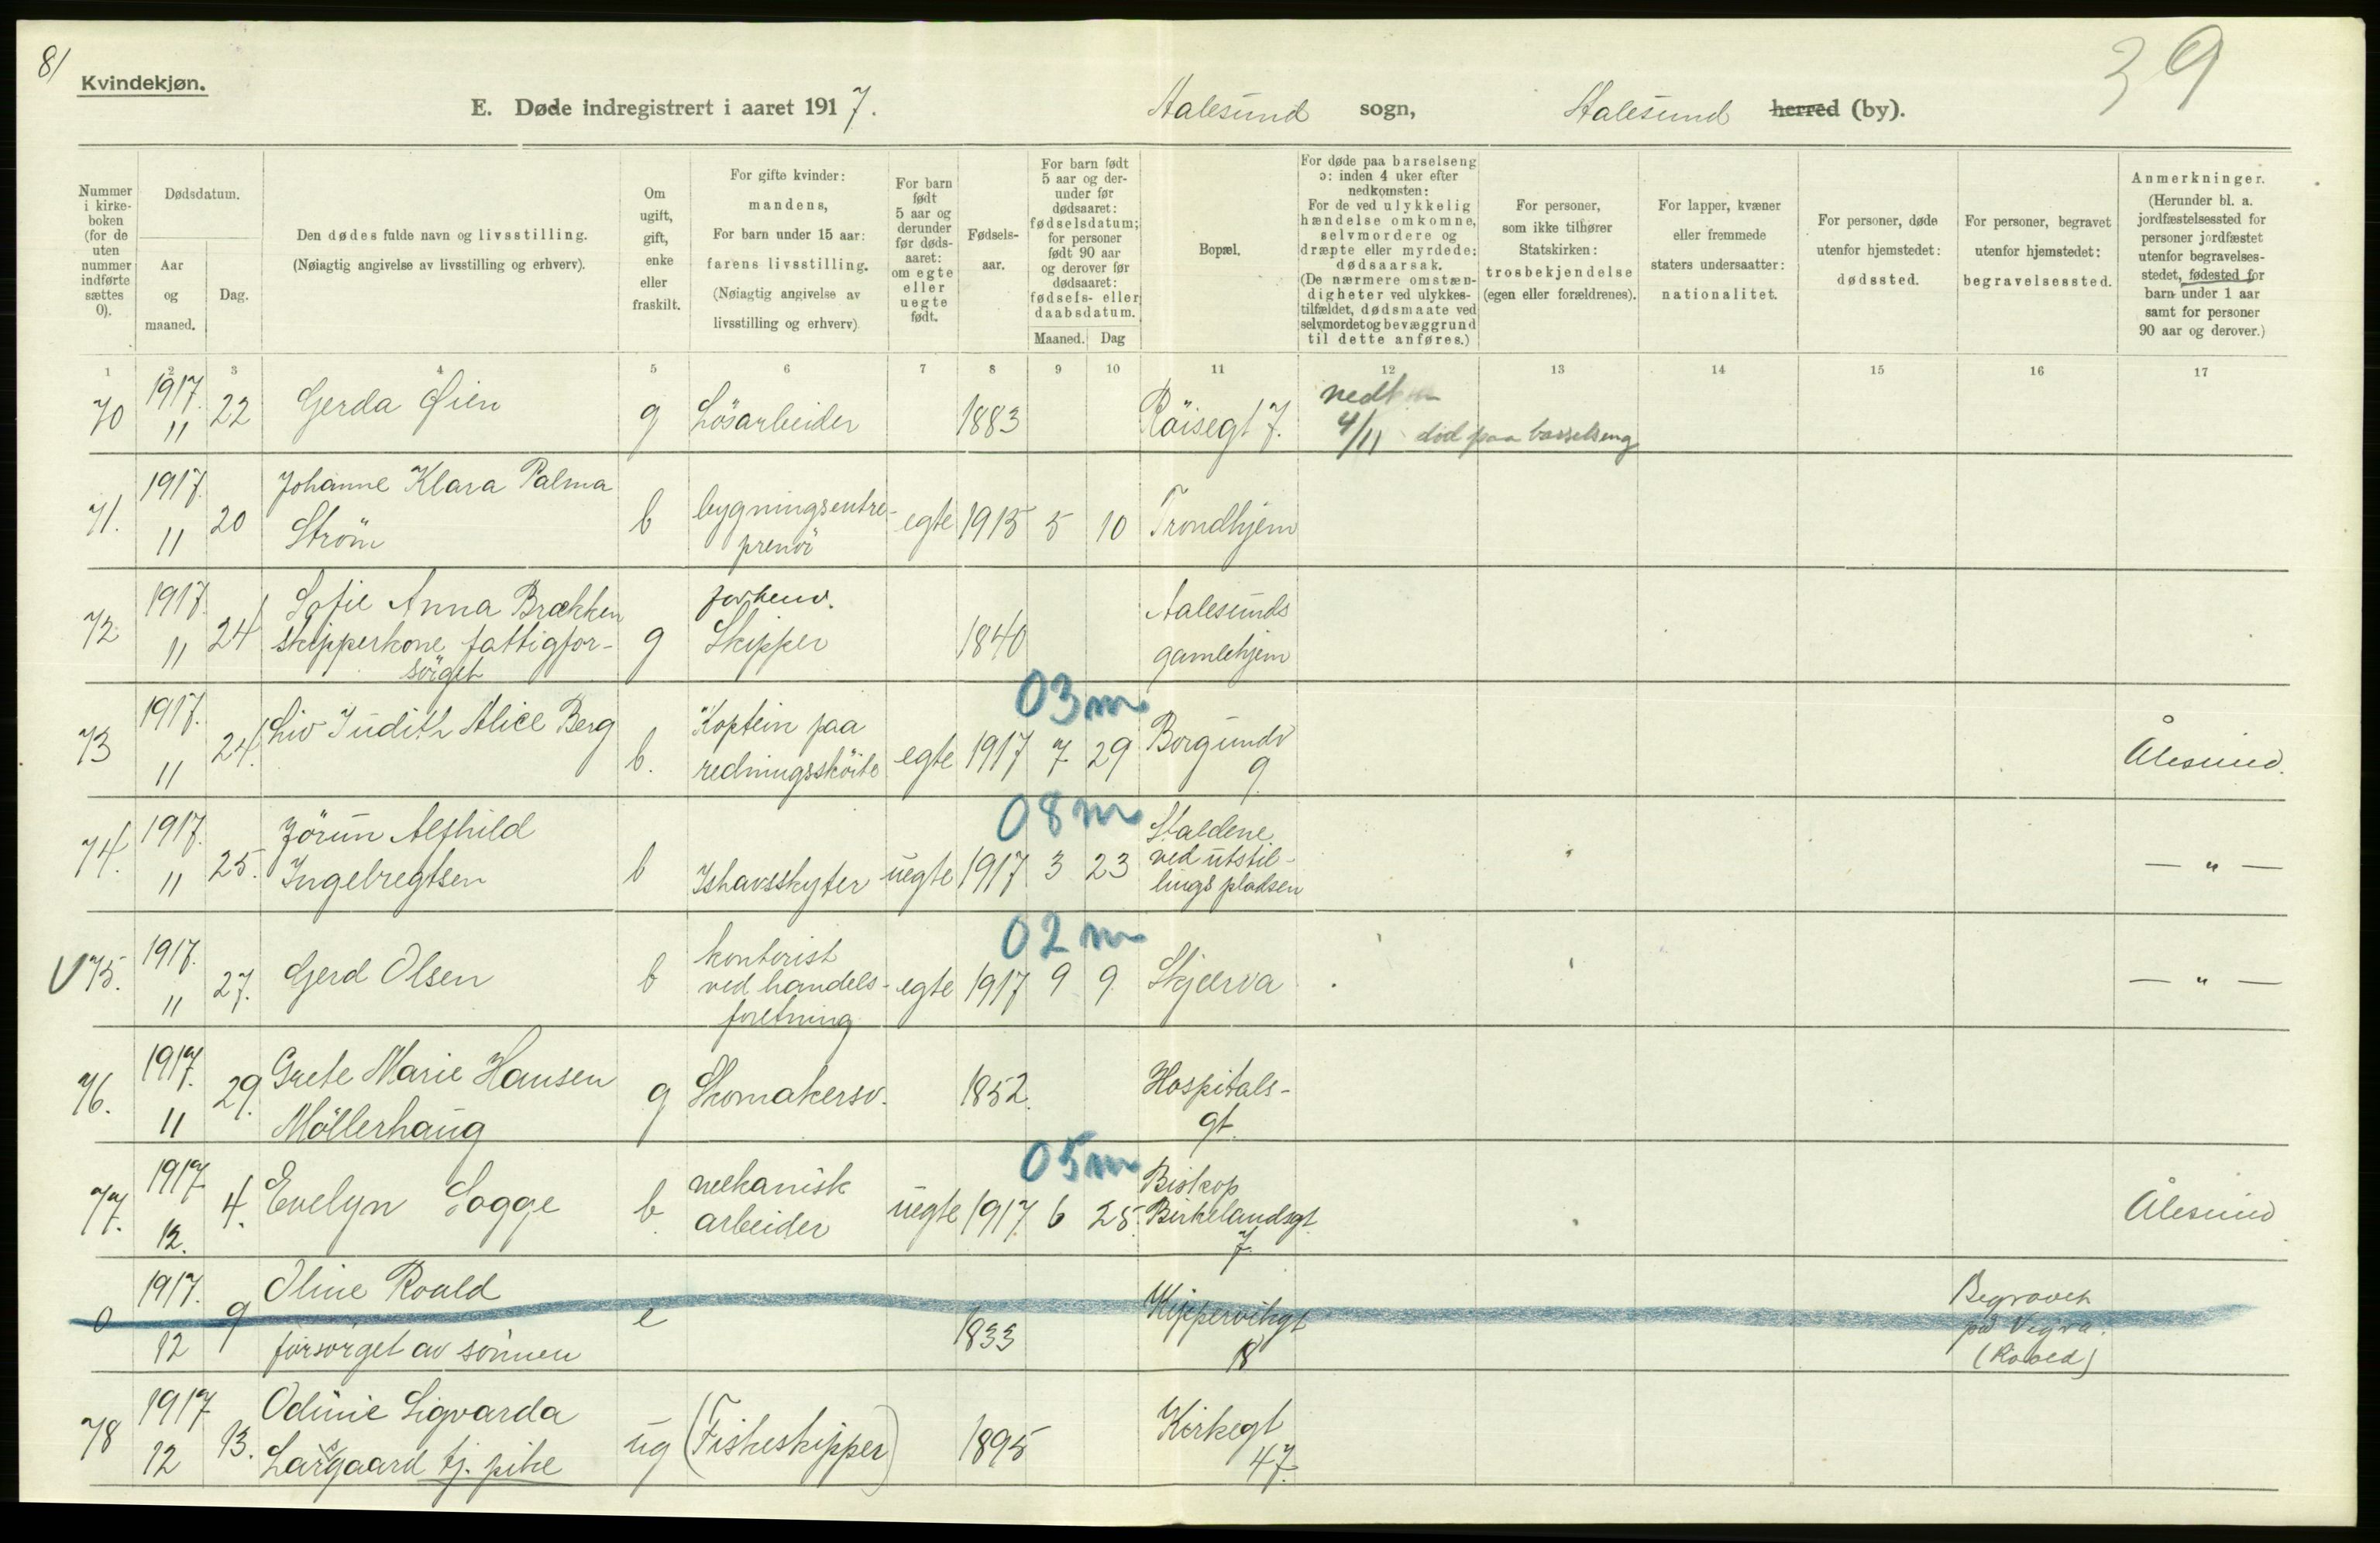 81
39
Kvindekjøn.
E. Døde indregistrert i aaret 1917.
Aalesund sogn,
Aalesund herred (by).
Nummer i kirke-boken (for de uten nummer indførte sættes 0).
Dødsdatum.
Aar og maaned.
Dag.
Den dødes fulde navn og livsstilling.
(Nøiagtig angivelse av livsstilling og erhverv).
Om ugift, gift, enke eller fraskilt.
For gifte kvinder: mandens,
For barn under 15 aar: farens livsstilling.
(Nøiagtig angivelse av livsstilling og erhverv)
For barn født 5 aar og derunder før døds-aaret: om egte eller uegte født.
Fødsels-aar.
For barn født 5 aar og der-under før dødsaaret: fødselsdatum; for personer født 90 aar og derover før dødsaaret: fødsels- eller daabsdatum.
Maaned. Dag
Bopæl.
For døde paa barselseng ɔ: inden 4 uker efter nedkomsten:
For de ved ulykkelig hændelse omkomne, selvmordere og dræpte eller myrdede: dødsaarsak.
(De nærmere omstæn-digheter ved ulykkes-tilfældet, dødsmaate ved selvmordet og bevæggrund til dette anføres.)
For personer, som ikke tilhører Statskirken: trosbekjendelse (egen eller forældrenes).
For lapper, kvæner eller fremmede staters undersaatter: nationalitet.
For personer, døde utenfor hjemstedet: dødssted.
For personer, begravet utenfor hjemstedet: begravelsessted.
Anmerkninger.
(Herunder bl. a. jordfæstelsessted for personer jordfæstet utenfor begravelses-stedet, fødested for barn under 1 aar samt for personer 90 aar og derover.)
1 2 3 4 5 6 7 8 9 10 11 12 13 14 15 16 17
70 1917. 11 22 Gerda Øien g Løsarbeider 1883 Röisegt 7. 4/11 død paa barselseng
71. 1917. 11 20 Johanne Klara Palma
Ström b bygningsentre-
prenör egte 1915 5 10 Trondhjem
72 1917. 11 24 Sofie Anna Brækken
skipperkone, fattigfor-
sörget g forhenv.
Skipper 1840 Aalesunds
gamlehjem
73 1917. 11 24. Liv Judith Alice Berg b. Kaptein paa
redningsskøite egte 1917 7 29 03m Borgundv
9. Ålesund.
74. 1917. 11 25. Jörun Alfhild
Ingebregtsen b Ishavsskyter uegte 1917 3 23 08m Staldene
ved utstil-
lings pladsen — " —
V 75. 1917. 11 27. Gerd Olsen b kontorist
ved handels-
foretning egte 1917 9 9 02m Skjærva — " —
76. 1917. 11 29. Grete Marie Hansen
Möllerhaug g Skomakersv. 1852. Hospitals-
gt.
77. 1917 12. 4. Evelyn Sogge b. mekanisk
arbeider uegte 1917 6 25. 05m Biskop
Birkelandsgt.
7. Ålesund
0 1917. 12 9 Oline Roald
forsörget av sönnen e 1833 Kippervikgt
18 Begravet
på Vigra.
(Roald)
78 1917 12 13. Odinie Sigvarda
Larsgaard tj. pike ug (Fiskeskipper) 1895 Kirkegt
47.